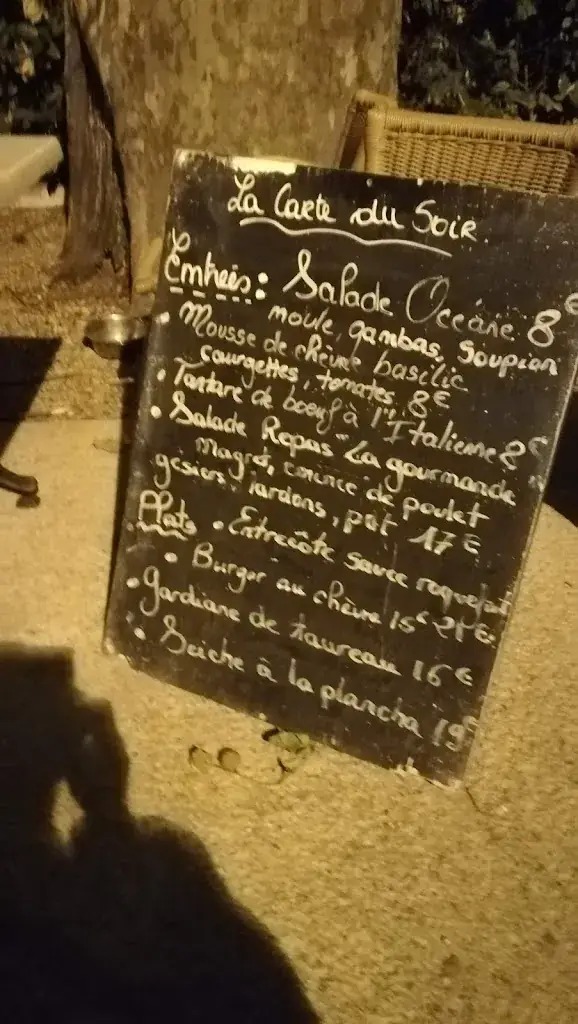 La Carte du Soir
Entrées: Salade Océane 8€
moule, gambas, Soupion
• Mousse de chèvre basilic
courgettes, tomates 8€
• Tartare de boeuf à l'Italienne 8€
• Salade Repas "La gourmande"
magret, émincé de poulet
gésiers, lardons, pât 17€
Plats • Entrecôte sauce roquefort
21€
• Burger au chèvre 15€
• Gardiane de taureau 16€
• Seiche à la plancha 19€